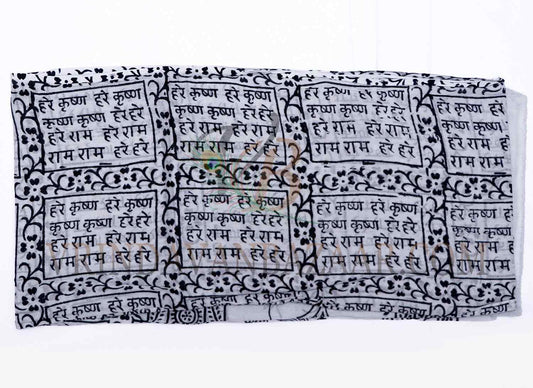 हरे कृष्ण हरे कृष्ण
कृष्ण कृष्ण हरे हरे
हरे राम हरे राम
राम राम हरे हरे
हरे कृष्ण हरे कृष्ण
कृष्ण कृष्ण हरे हरे
हरे राम हरे राम
राम राम हरे हरे
हरे कृष्ण हरे कृष्ण
कृष्ण कृष्ण हरे हरे
हरे राम हरे राम
राम राम हरे हरे
हरे कृष्ण हरे
कृष्ण कृष्ण हरे
हरे राम हरे
राम राम हरे
हरे कृष्ण हरे कृष्ण
कृष्ण कृष्ण हरे हरे
हरे राम हरे राम
राम राम हरे हरे
हरे कृष्ण हरे कृष्ण
कृष्ण कृष्ण हरे हरे
हरे राम हरे राम
राम राम हरे हरे
हरे कृष्ण हरे कृष्ण
कृष्ण कृष्ण हरे हरे
हरे राम हरे राम
राम राम हरे हरे
हरे कृष्ण हरे
कृष्ण कृष्ण
हरे राम
राम राम हरे
हरे कृष्ण हरे कृष्ण
हरे कृष्ण हरे कृष्ण
हरे कृष्ण हरे कृष्ण
हरे कृष्ण